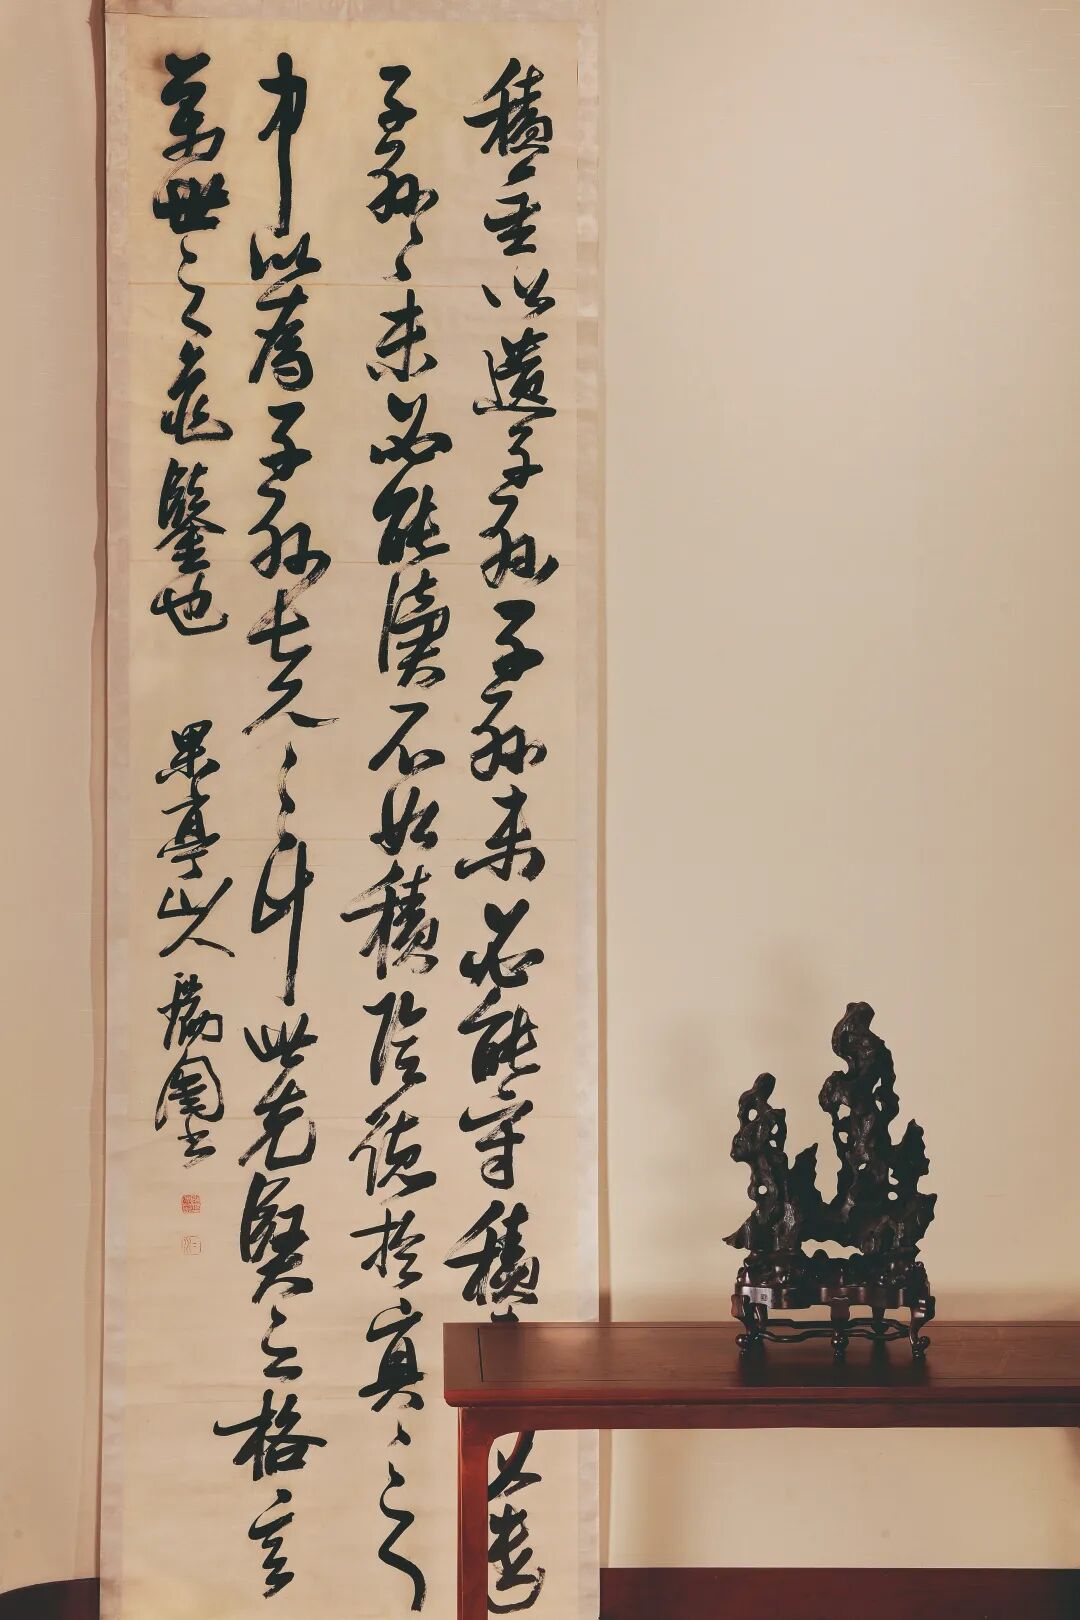 積金以遺子孫子孫未必能守積以遺
子孫〻未必能讀不如積陰德於冥〻之
中以為子孫長久之計此先賢之格言
萬世之龜鑒也 果亭山人瑞圖書